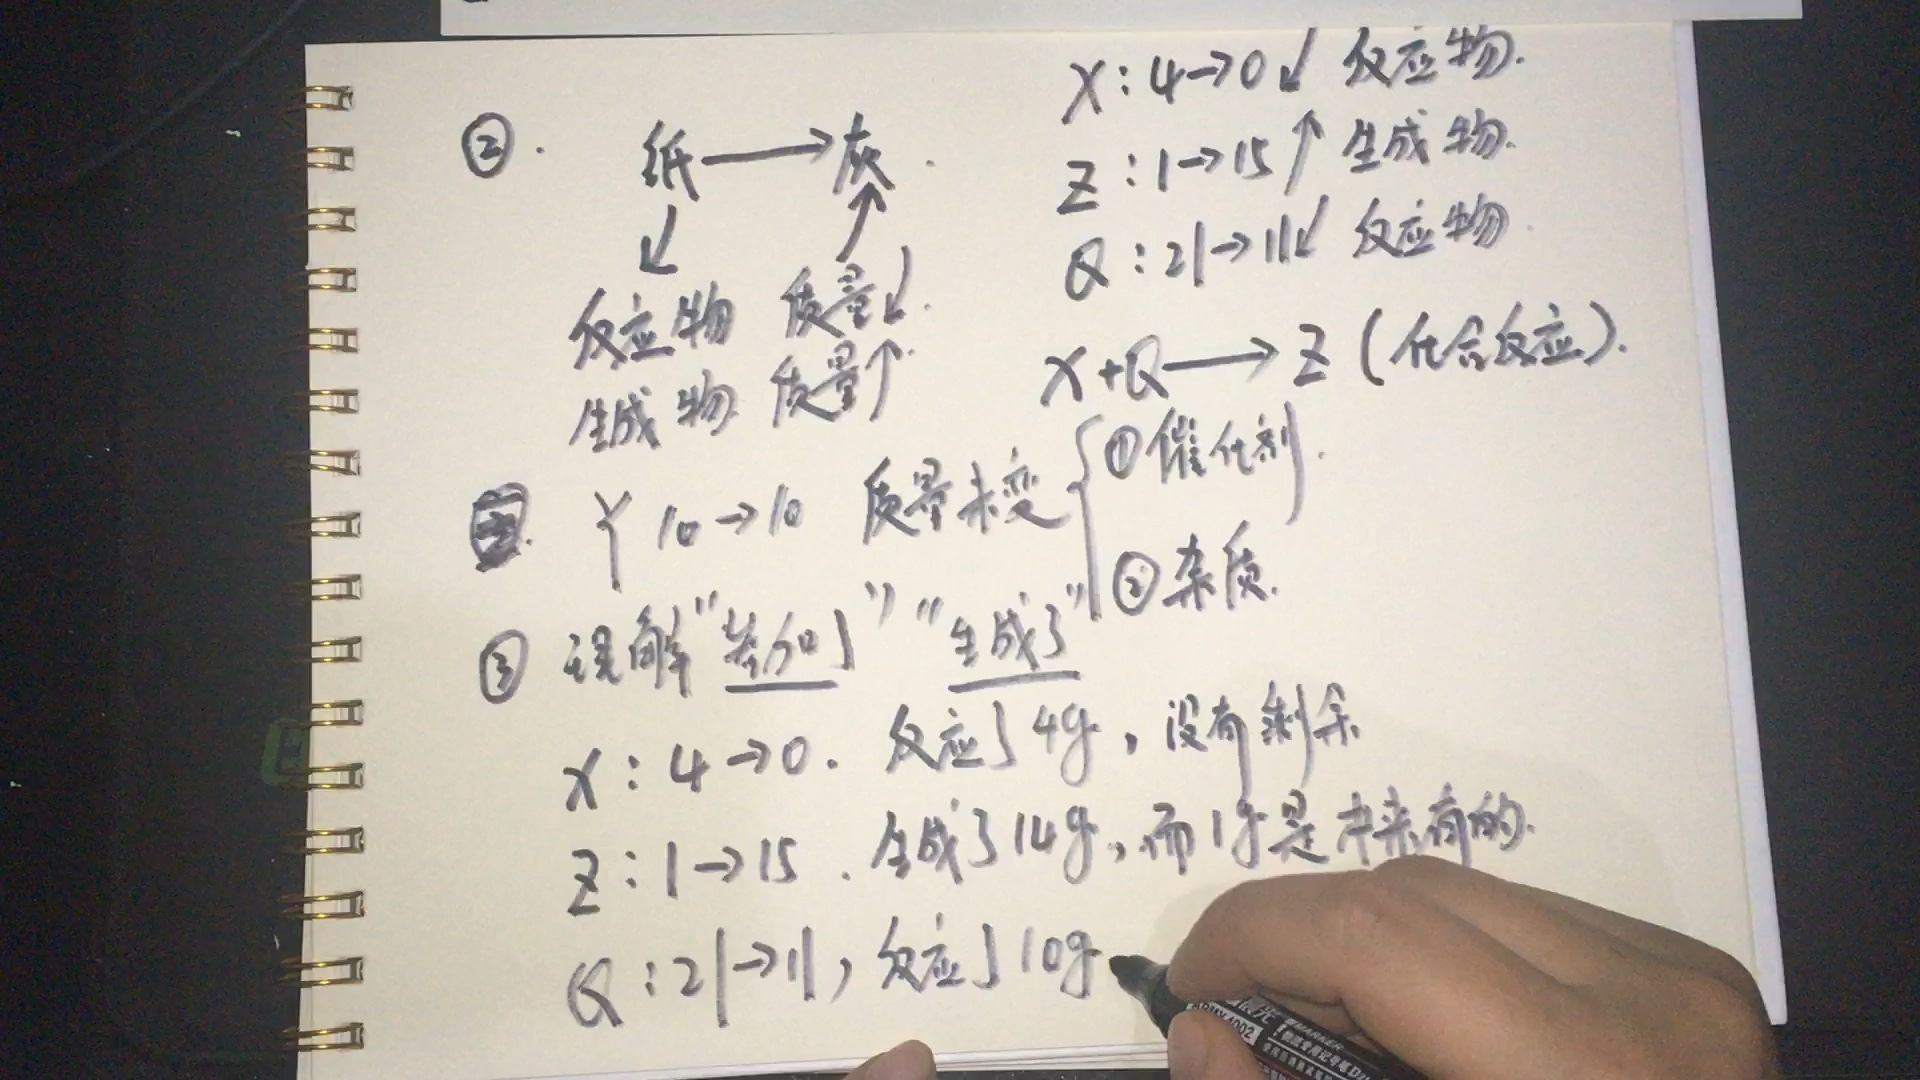 ②. 纸→灰.
反应物 质量↓.
生成物 质量↑.
X:4→0↓ 反应物.
Z:1→15↑ 生成物.
Q:21→11↓ 反应物.
X+Q→Z(化合反应).
Y 10→10 质量未变
①催化剂.
②杂质.
③ 理解"参加了""生成了"
X:4→0. 反应了4g,没有剩余
Z:1→15. 生成了14g,而1g是本来有的.
Q:21→11,反应了10g
MARKER